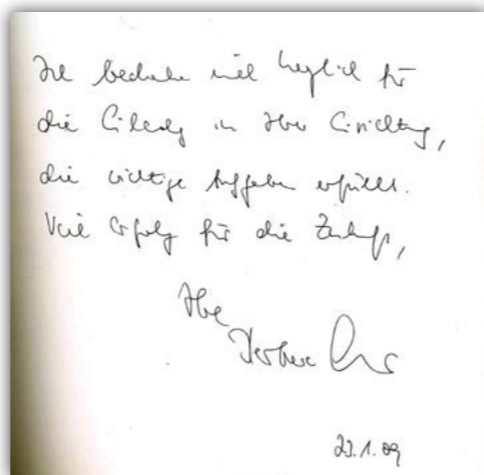 Ich bedanke mich herzlich für
die Einladung in Ihre Einrichtung,
die wichtige Aufgaben erfüllt.
Viel Erfolg für die Zukunft,
Ihre
23.1.09